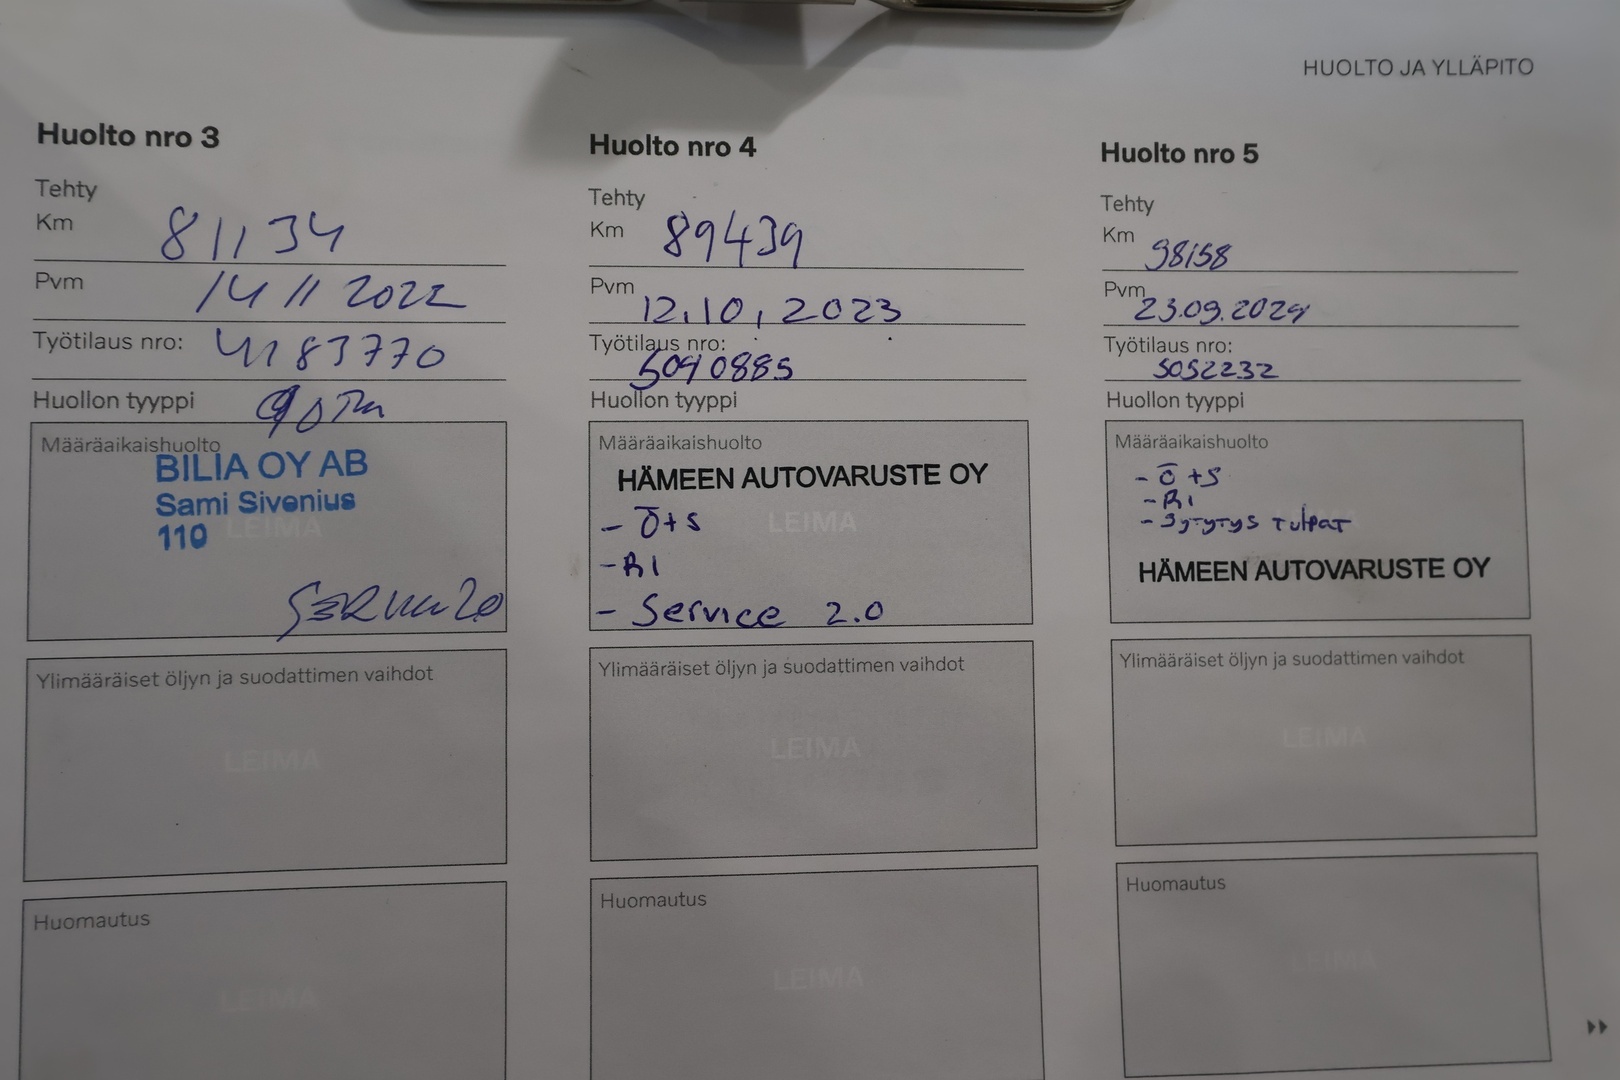 HUOLTO JA YLLÄPITO
Huolto nro 3
Tehty
Km 81134
Pvm 14 11 2022
Työtilaus nro: 4183770
Huollon tyyppi
Määräaikaishuolto
BILIA OY AB
Sami Sivenius
110
LEIMA
Ylimääräiset öljyn ja suodattimen vaihdot
LEIMA
Huomautus
LEIMA
Huolto nro 4
Tehty
Km 89439
Pvm 12.10.2023
Työtilaus nro: 5090885
Huollon tyyppi
Määräaikaishuolto
HÄMEEN AUTOVARUSTE OY
LEIMA
- Ö+S
- RI
- Service 2.0
Ylimääräiset öljyn ja suodattimen vaihdot
LEIMA
Huomautus
LEIMA
Huolto nro 5
Tehty
Km 98158
Pvm 23.09.2024
Työtilaus nro: 5052232
Huollon tyyppi
Määräaikaishuolto
- Ö+S
- RI
- Sytytys tulpat
HÄMEEN AUTOVARUSTE OY
Ylimääräiset öljyn ja suodattimen vaihdot
LEIMA
Huomautus
LEIMA